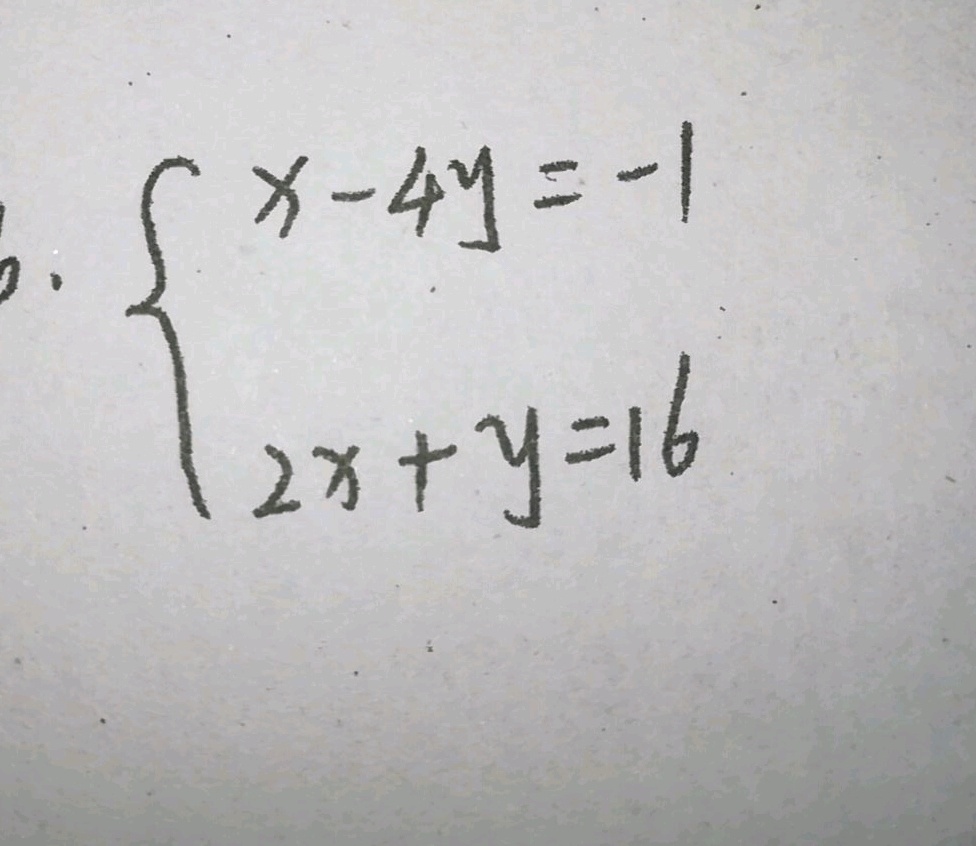 6. { x - 4y = -1
2x + y = 16